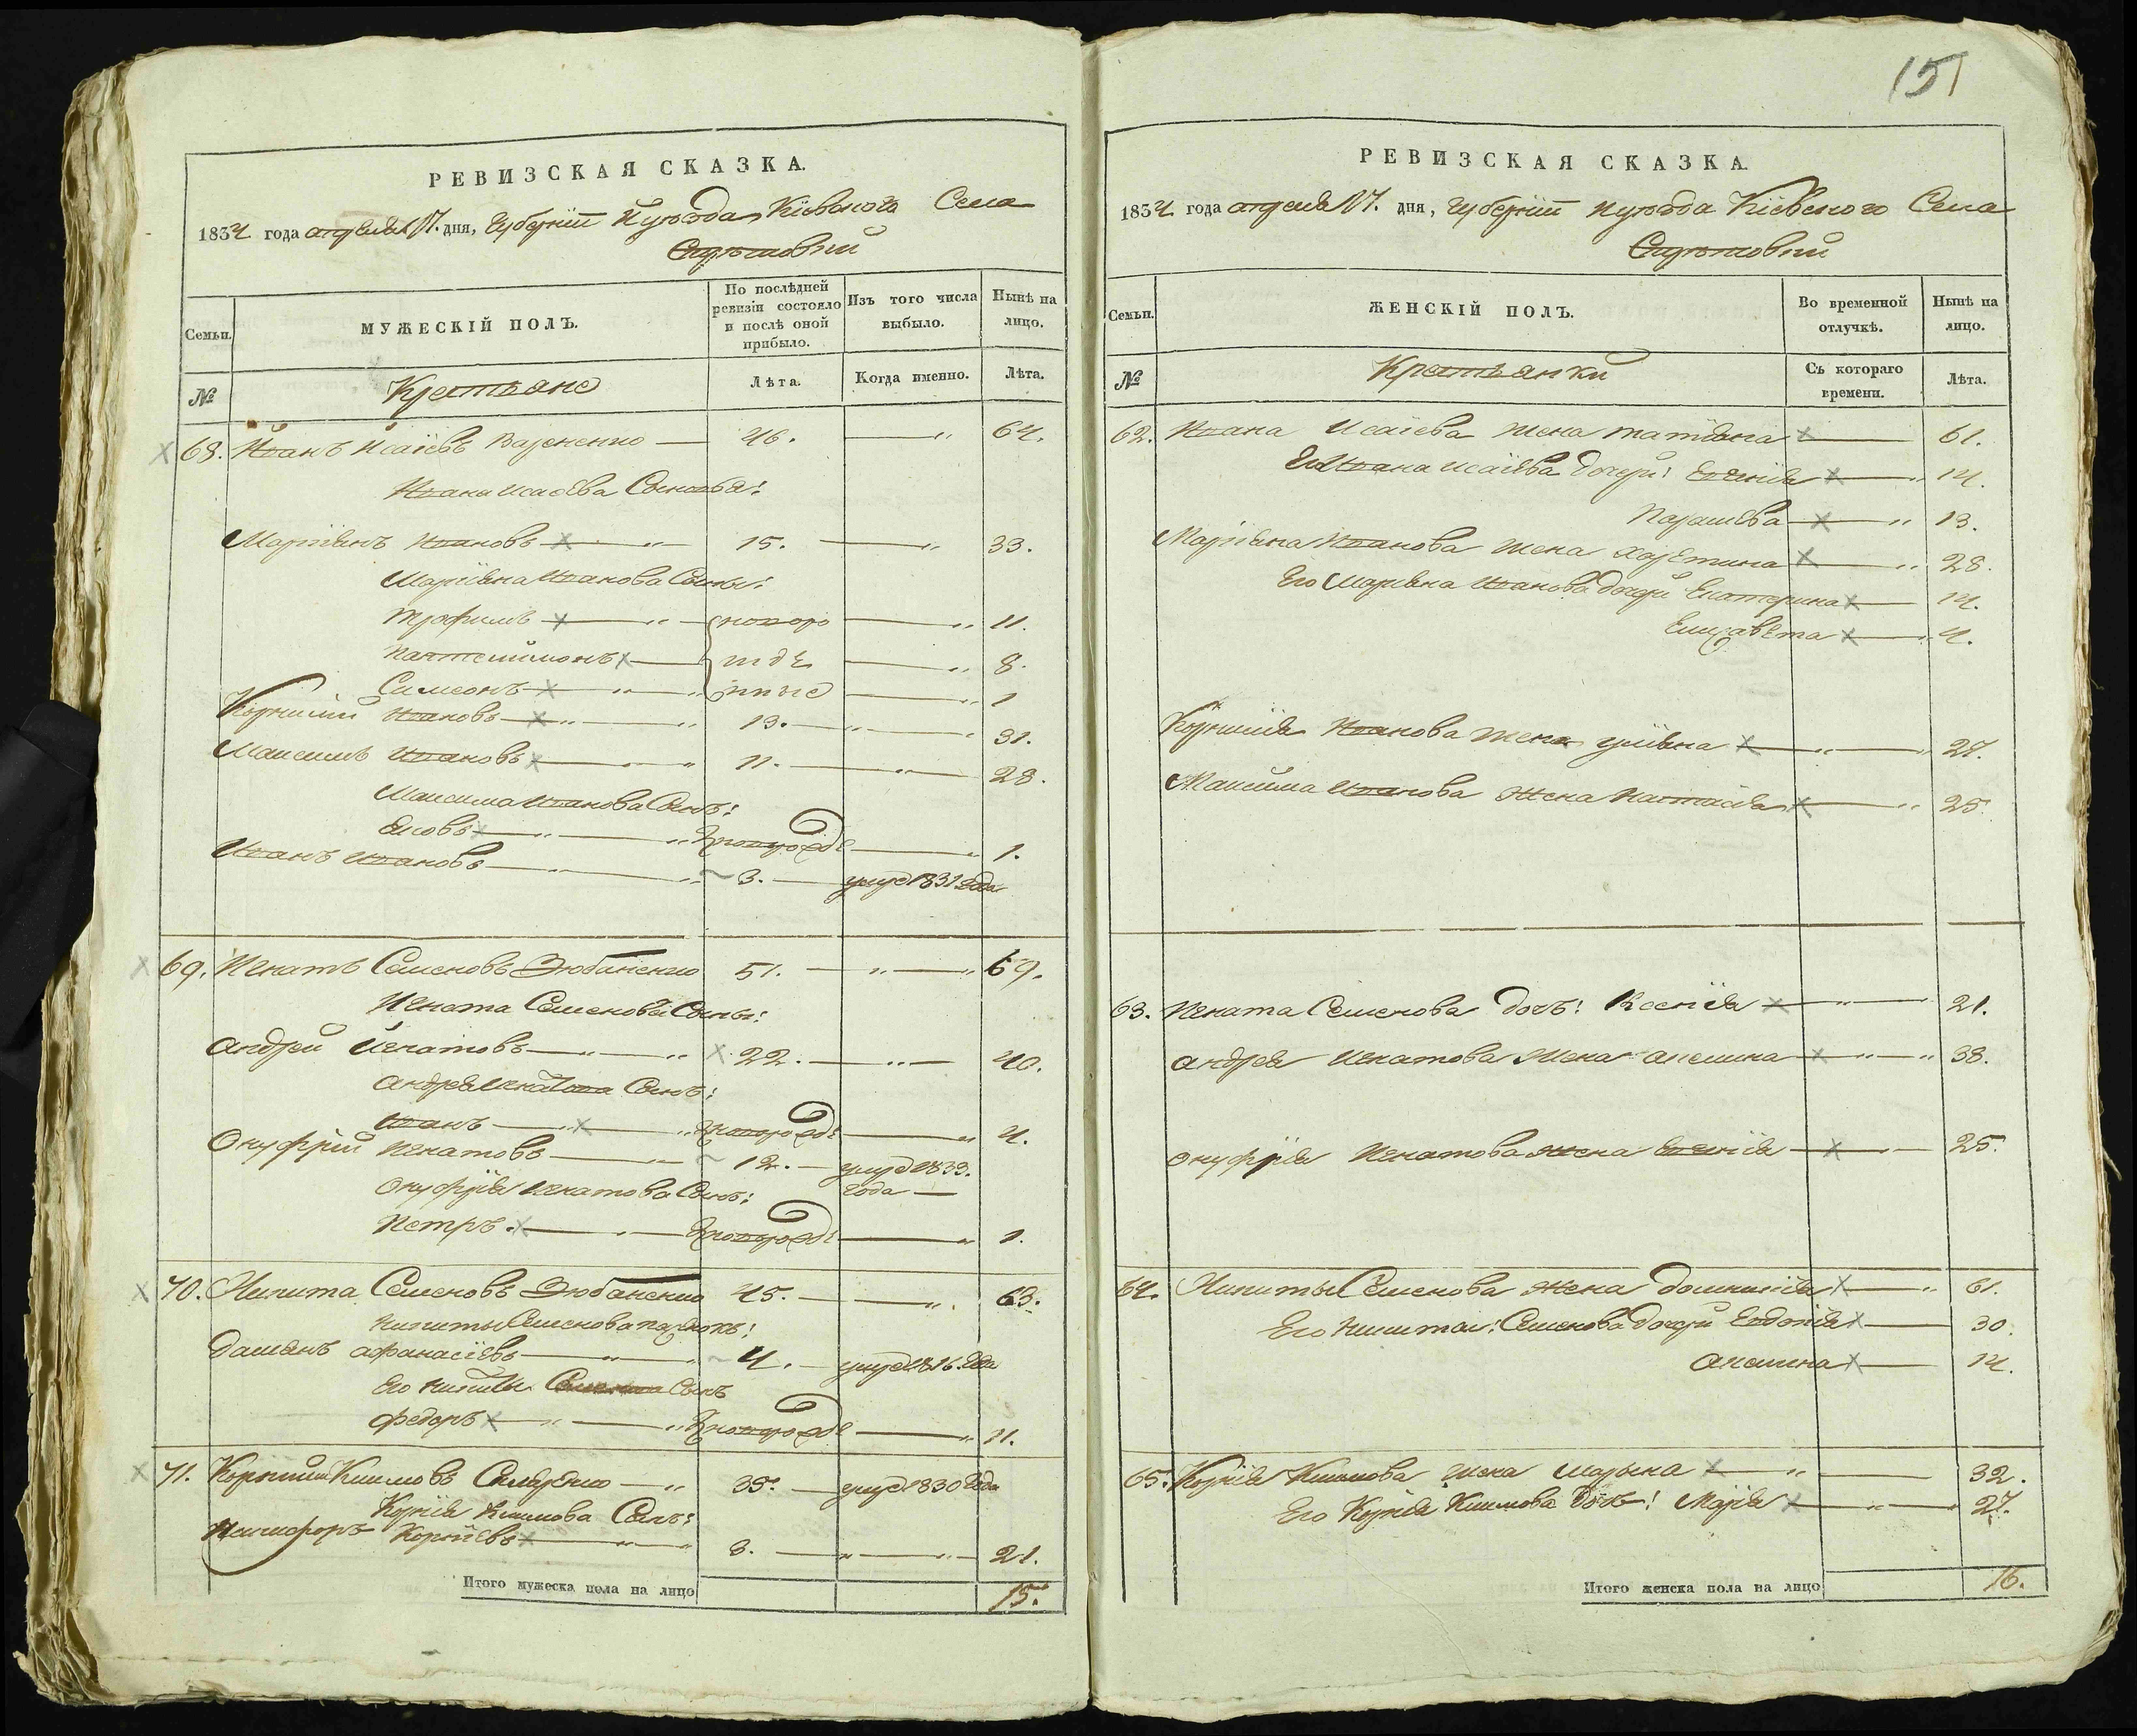 151
РЕВИЗСКАЯ СКАЗКА.
1834 года апреля 17. дня, Губернiи и уезда Кiевского Села
МУЖЕСКIЙ ПОЛЪ.
Семьи.
По послѣдней ревизiи состояло и послѣ оной прибыло.
Изъ того числа выбыло.
Нынѣ на лицо.
№
Крестьяне
Лѣта.
Когда именно.
Лѣта.
68. Иванъ Исаiевъ 46. — " 64.
Ивана Исаева Сыновья:
Марiянъ Ивановъ — " 15. — " 33.
Марiяна Иванова Сыны:
Трофимъ — " — новоро — " 11.
Пантелимонъ — жде — " 8.
Симеонъ — " — " нные — " 1
Корнилiй Ивановъ — " — " 13. — " — " 31.
Максимъ Ивановъ — " 11. — " — 28.
Максима Иванова Сынъ:
Яковъ — " — " новорожде — " 1.
Иванъ Ивановъ — " 3. — умре 1831 года
69. Игнатъ Семеновъ Зюбаненко 51. — " — " 69.
Игната Семенова Сыны:
Андрей Игнатовъ — " — " 22. — " — 40.
Андрея Игнатова Сынъ:
Иванъ — " новорожде — " 4.
Онуфрiй Игнатовъ — 12. — умре 1833.
года —
Онуфрiя Игнатова Сынъ:
Петръ — " — новорожде — " 1.
70. Никита Семеновъ Зюбаненко 45. — " 63.
Никиты Семенова
Дамянъ Афанасiевъ — " — " 4. — умре 1816. года
Его Никиты Семенова Сынъ
Федоръ — " — " новорожде — " 11.
71. Корнилiй Климовъ — " 35. — умре 1830 года
Корнiя Климова Сынъ:
Никифоръ Корнiевъ — " 3. — " — " — 21.
Итого мужеска пола на лицо 15.
РЕВИЗСКАЯ СКАЗКА.
1834 года апреля 17. дня, Губернiи и уезда Кiевского Села
Семьи.
ЖЕНСКIЙ ПОЛЪ.
Во временной отлучкѣ.
Нынѣ на лицо.
№
Крестьянки
Съ котораго времени.
Лѣта.
62. Ивана Исаiева жена Татiяна — 61.
Его Ивана Исаiева дочери: Евгенiя — " 14.
Парасиева — " 13.
Марiяна Иванова жена Харетина — " 28.
Его Марiяна Иванова дочери Екатерина — 14.
Елисавета — 4.
Корнилiя Иванова жена Улiяна — " — " 27.
Максима Иванова жена Настасiя — " 25.
63. Игната Семенова дочь: Ксенiя — " — 21.
Андрея Игнатова жена Акелина — " — " 38.
Онуфрiя Игнатова жена Евгенiя — " — 25.
64. Никиты Семенова жена Домникiя — " 61.
Его Никиты: Семенова дочери Евдокiя — 30.
Акелина — 14.
65. Корнiя Климова жена Марьяна — " — 32.
Его Корнiя Климова дочь: Марiя — " — " 27.
Итого женска пола на лицо 16.